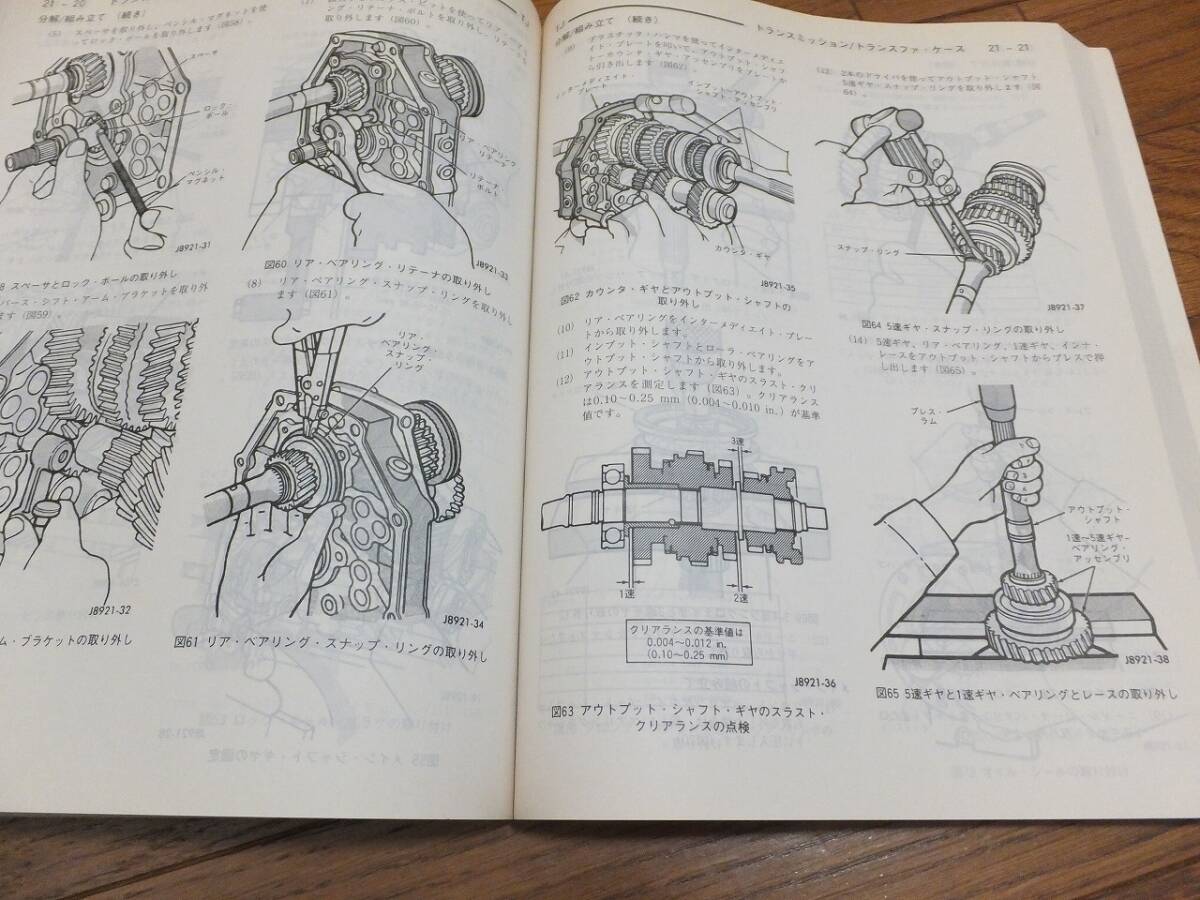 21 - 20
分解/組み立て (続き)
(5) スペーサを取り外し、ペンシル・マグネットを使
ってロック・ボールを取り外します(図58)。
スペーサ
ロック・
ボール
ペンシル・
マグネット
J8921-31
8 スペーサとロック・ボールの取り外し
バース・シフト・アーム・ブラケットを取り外
ます(図59)。
J8921-32
ム・ブラケットの取り外し
取り外します(図60)。
リア・ベアリング・
リテーナ
リテーナ・
ボルト
J8921-33
図60 リア・ベアリング・リテーナの取り外し
(8) リア・ベアリング・スナップ・リングを取り外し
ます(図61)。
リア・
ベアリング・
スナップ・
リング
J8921-34
図61 リア・ベアリング・スナップ・リングの取り外し
トランスミッション/トランスファ・ケース 21 - 21
分解/組み立て (続き)
(9) プラスチック・ハンマを使ってインターメディエ
イト・プレートを叩いて、アウトプット・シャフ
トーカウンタ・ギヤ・アッセンブリをプレートか
ら引き出します(図62)。
インターメディエイト・
プレート
インプットーアウトプット・
シャフト・アッセンブリ
カウンタ・ギヤ
J8921-35
図62 カウンタ・ギヤとアウトプット・シャフトの
取り外し
(10) リア・ベアリングをインターメディエイト・プレ
ートから取り外します。
(11) インプット・シャフトとローラ・ベアリングをア
ウトプット・シャフトから取り外します。
(12) アウトプット・シャフト・ギヤのスラスト・クリ
アランスを測定します(図63)。クリアランス
は0.10~0.25 mm (0.004~0.010 in.) が基準
値です。
3速
1速
2速
クリアランスの基準値は
0.004~0.012 in.
(0.10~0.25 mm)
J8921-36
図63 アウトプット・シャフト・ギヤのスラスト・
クリアランスの点検
(13) 2本のドライバを使ってアウトプット・シャフト
5速ギヤ・スナップ・リングを取り外します(図
64)。
スナップ・リング
J8921-37
図64 5速ギヤ・スナップ・リングの取り外し
(14) 5速ギヤ、リア・ベアリング、1速ギヤ、インナ・
レースをアウトプット・シャフトからプレスで押
し出します(図65)。
プレス・
ラム
アウトプット・
シャフト
1速~5速ギヤ-
ベアリング・
アッセンブリ
J8921-38
図65 5速ギヤと1速ギヤ・ベアリングとレースの取り外し